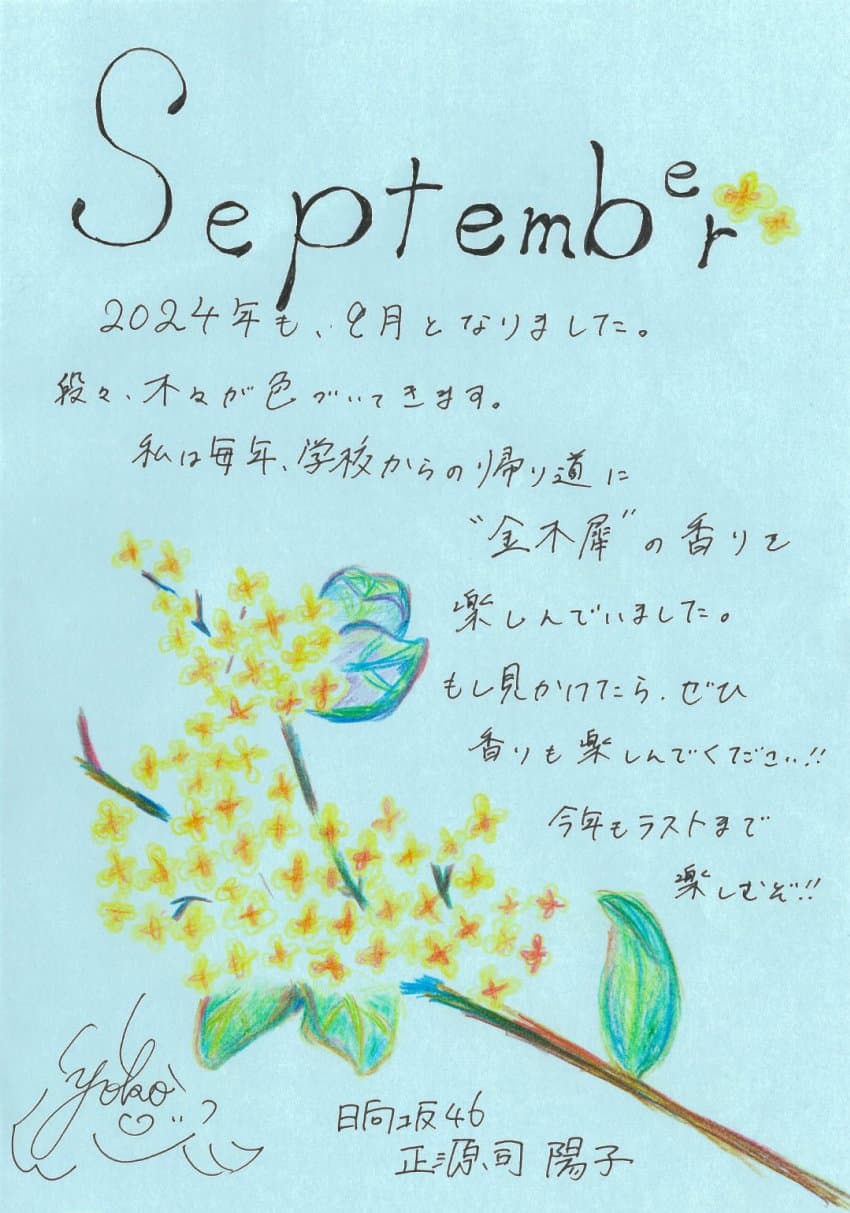 September
2024年も、9月となりました。
段々、木々が色づいてきます。
私は毎年、学校からの帰り道に
"金木犀"の香りを
楽しんでいました。
もし見かけたら、ぜひ
香りも楽しんでください!!
今年もラストまで
楽しむぞ!!
yoko
日向坂46
正源司 陽子